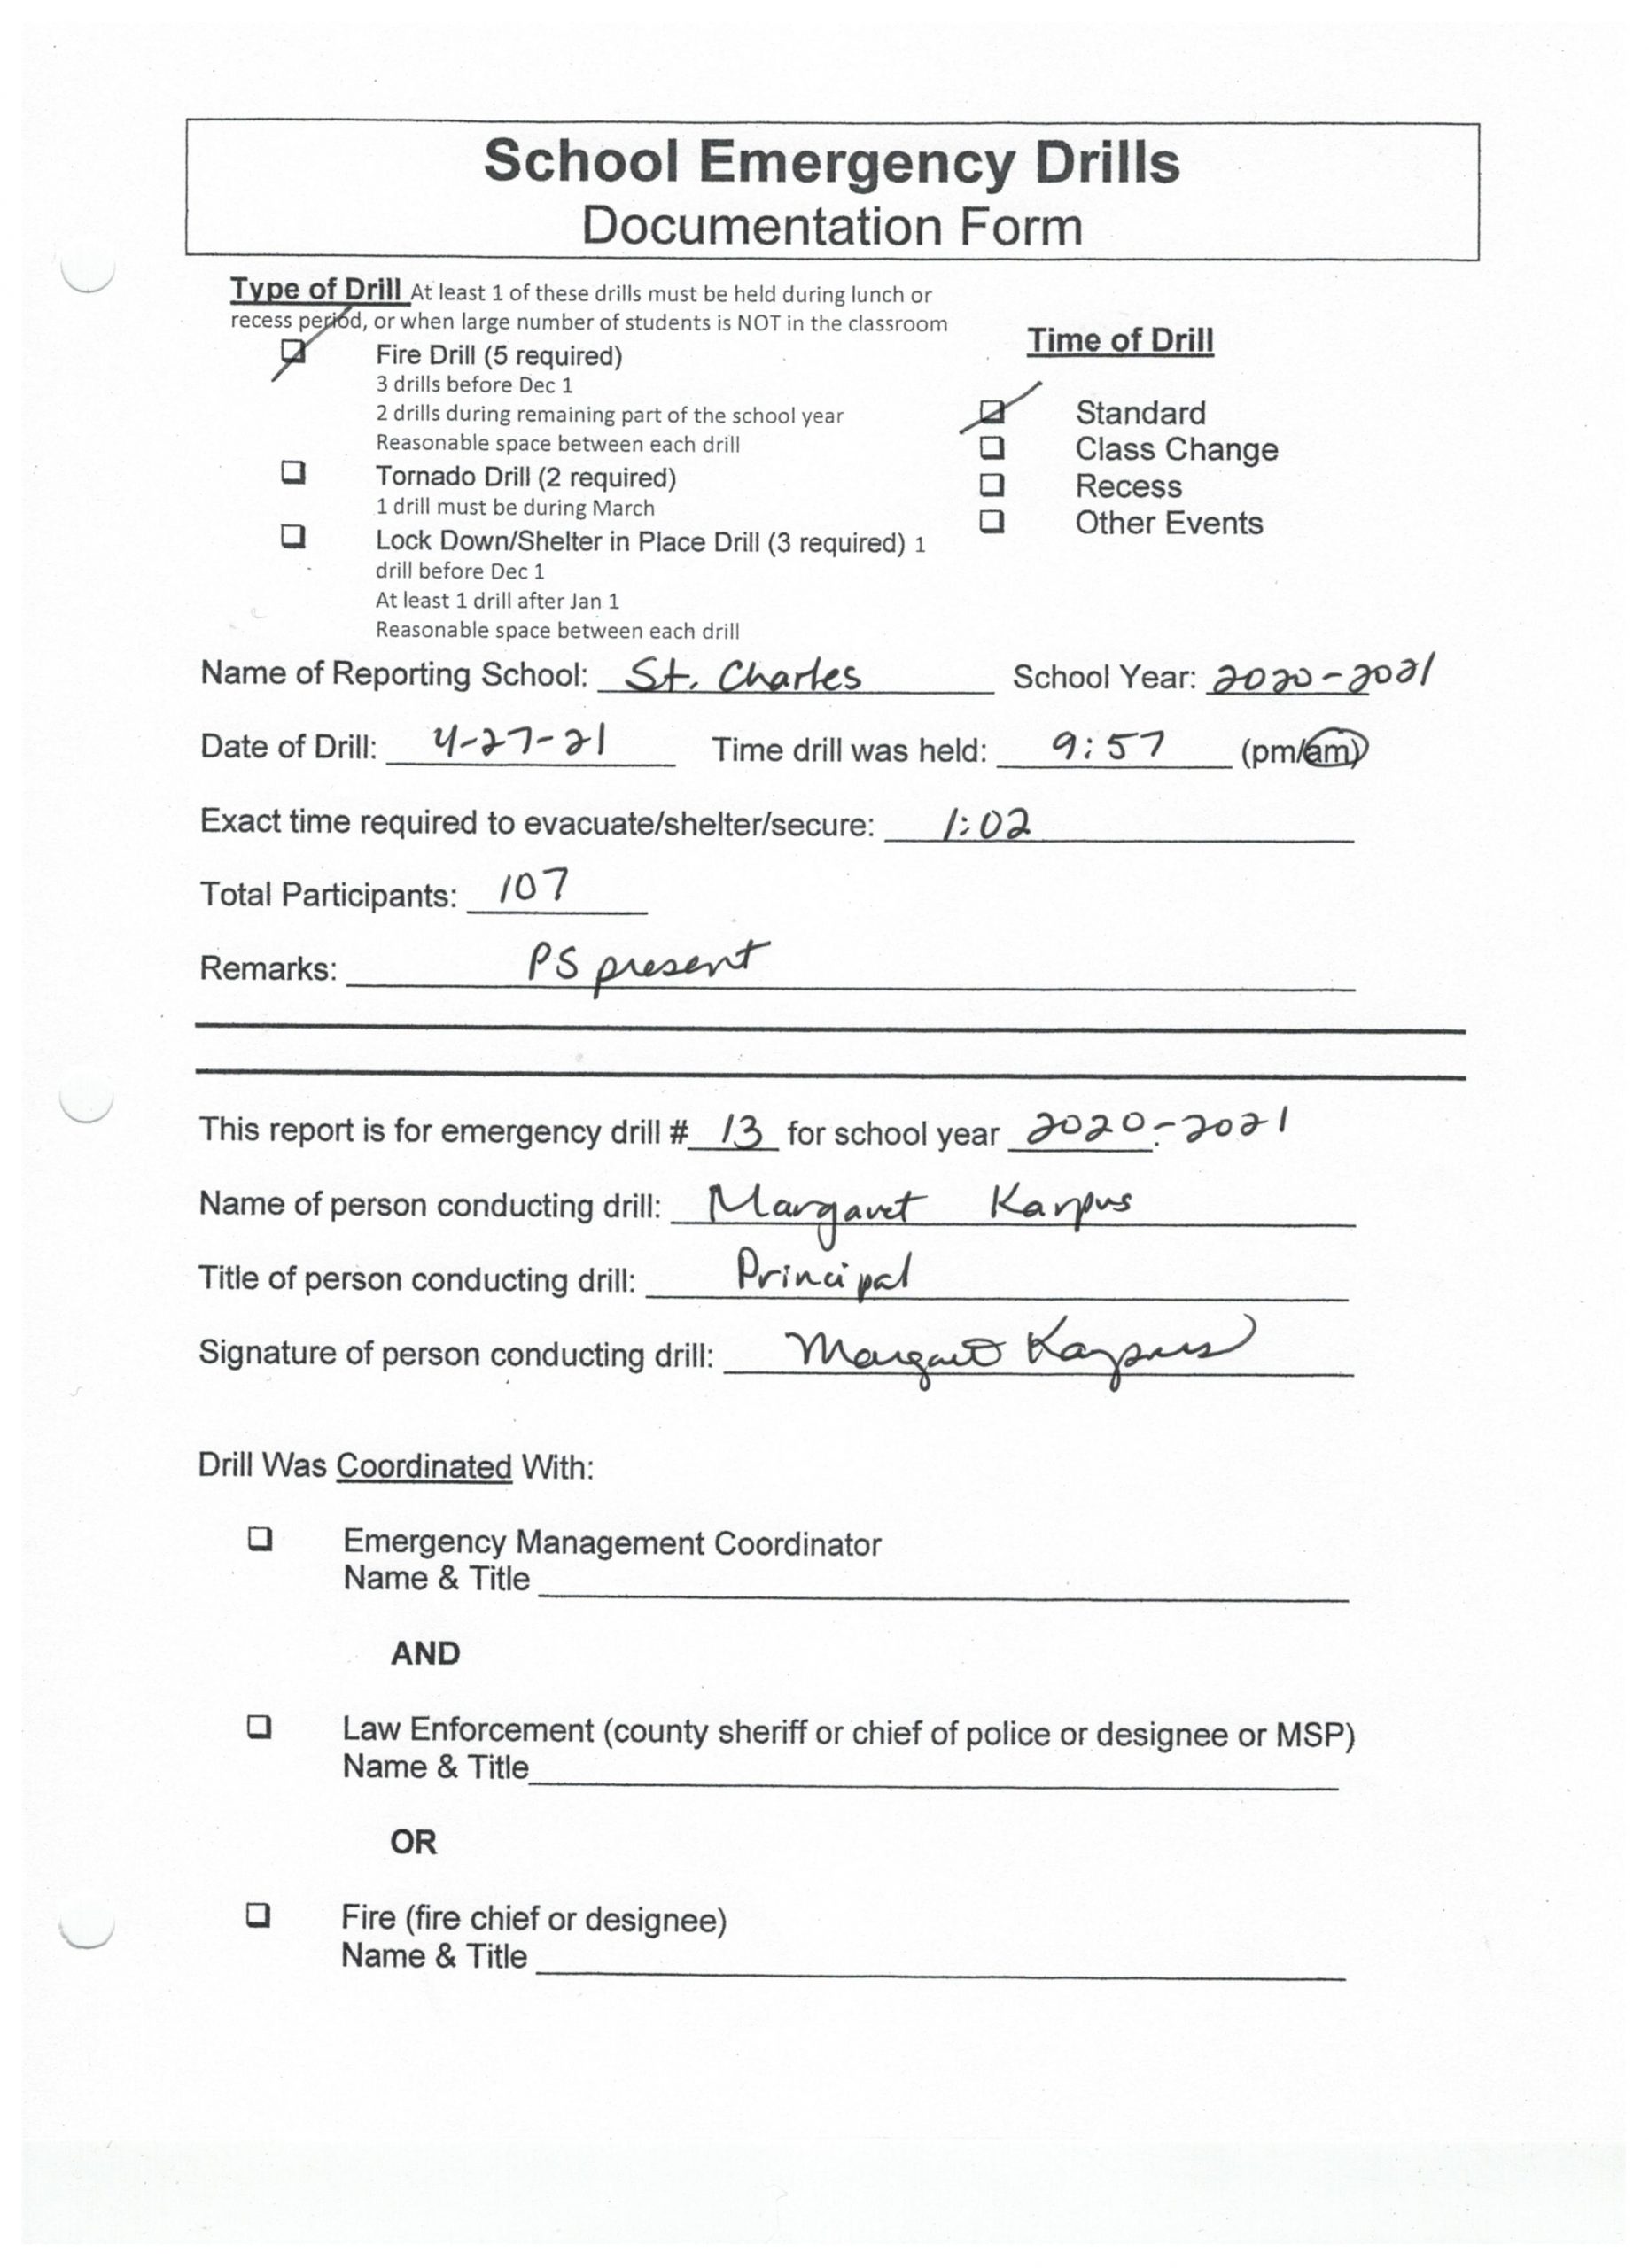 School Emergency Drills
Documentation Form
Type of Drill At least 1 of these drills must be held during lunch or
recess period, or when large number of students is NOT in the classroom
Time of Drill
Fire Drill (5 required)
3 drills before Dec 1
2 drills during remaining part of the school year
Reasonable space between each drill
Tornado Drill (2 required)
1 drill must be during March
Lock Down/Shelter in Place Drill (3 required) 1
drill before Dec 1
At least 1 drill after Jan 1
Reasonable space between each drill
Standard
Class Change
Recess
Other Events
Name of Reporting School: St. Charles School Year: 2020-2021
Date of Drill: 4-27-21 Time drill was held: 9:57 (pm/am)
Exact time required to evacuate/shelter/secure: 1:02
Total Participants: 107
Remarks: PS present
This report is for emergency drill # 13 for school year 2020-2021
Name of person conducting drill: Margaret Karpus
Title of person conducting drill: Principal
Signature of person conducting drill: Margaret Karpus
Drill Was Coordinated With:
Emergency Management Coordinator
Name & Title
AND
Law Enforcement (county sheriff or chief of police or designee or MSP)
Name & Title
OR
Fire (fire chief or designee)
Name & Title